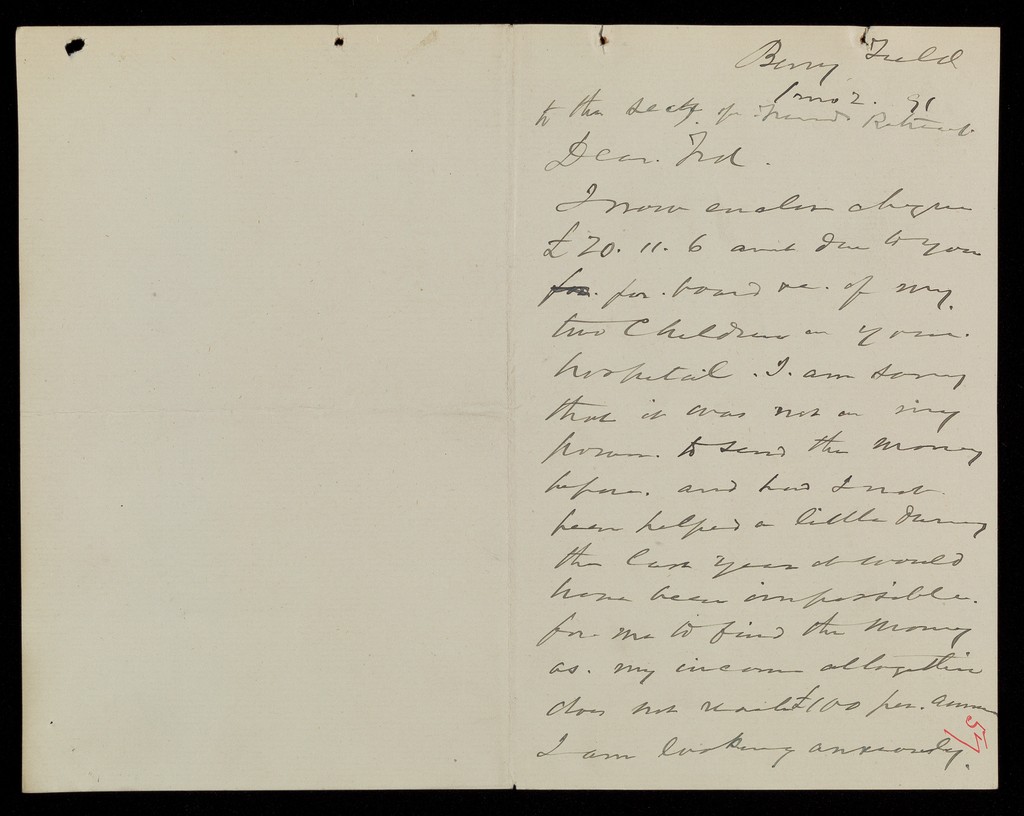 Berry Field
1 mo 2. 91
to the secty. of Friends Retreat
Dear. Frd.
I now enclose cheque
£20. 11. 6 amt due to you
for. for. board &c. of my
two Children in your.
hospital. I. am sorry
that it was not in my
power. to send the money
before. and had I not
been helped a little during
the last year it would
have been impossible.
for me to find the money
as. my income altogether
does not reach £100 per. annum
I am looking anxiously.